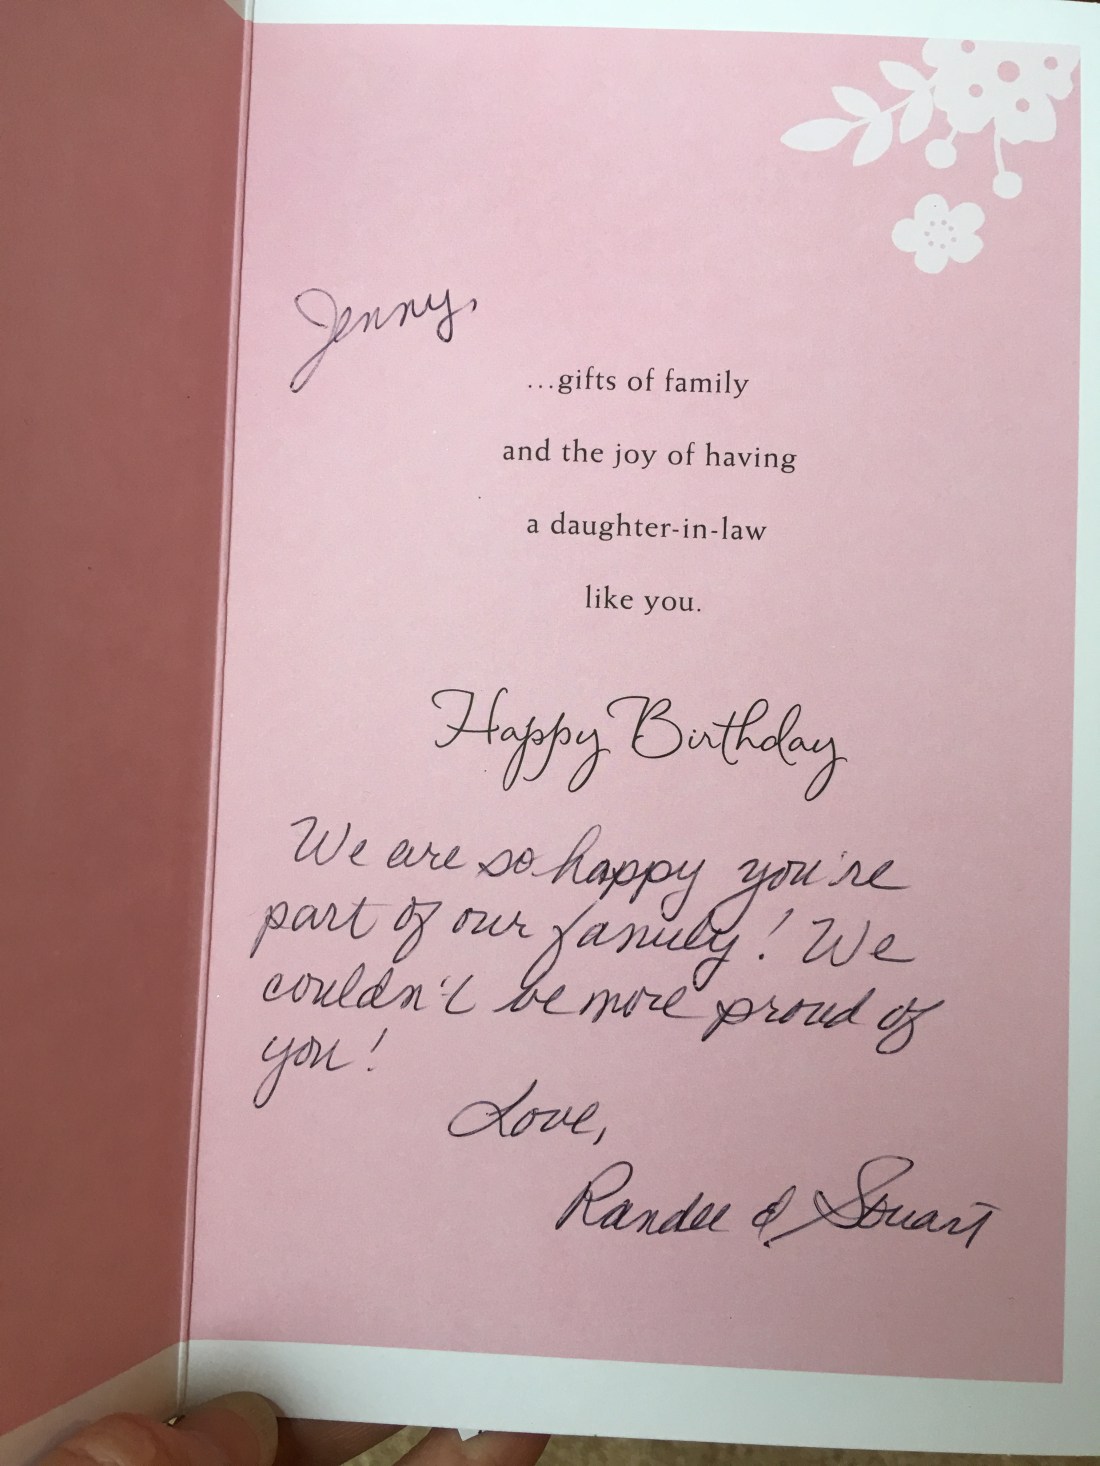 Jenny,
...gifts of family
and the joy of having
a daughter-in-law
like you.
Happy Birthday
We are so happy you're
part of our family! We
couldn't be more proud of
you!
Love,
Randee & Stuart